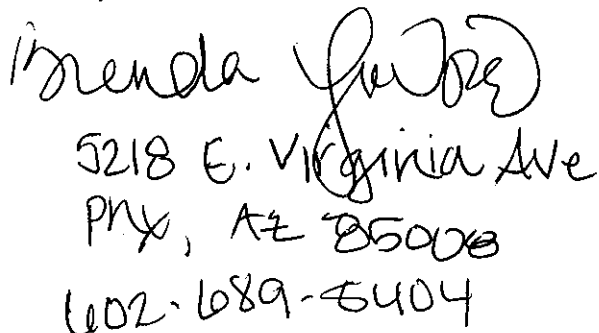 Brenda
5218 E. Virginia Ave
PHX, AZ 85008
602-689-5404